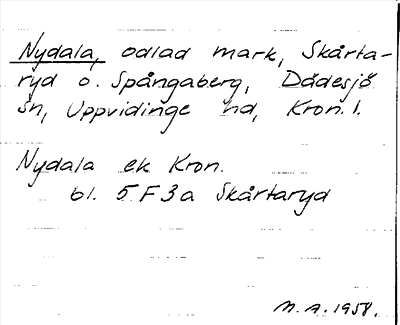 Nydala, odlad mark, Skårta-
ryd o. Spångaberg, Dädesjö
sn, Uppvidinge hd, Kron. l.
Nydala ek Kron.
bl. 5 F 3a Skårtaryd
M. A. 1958.